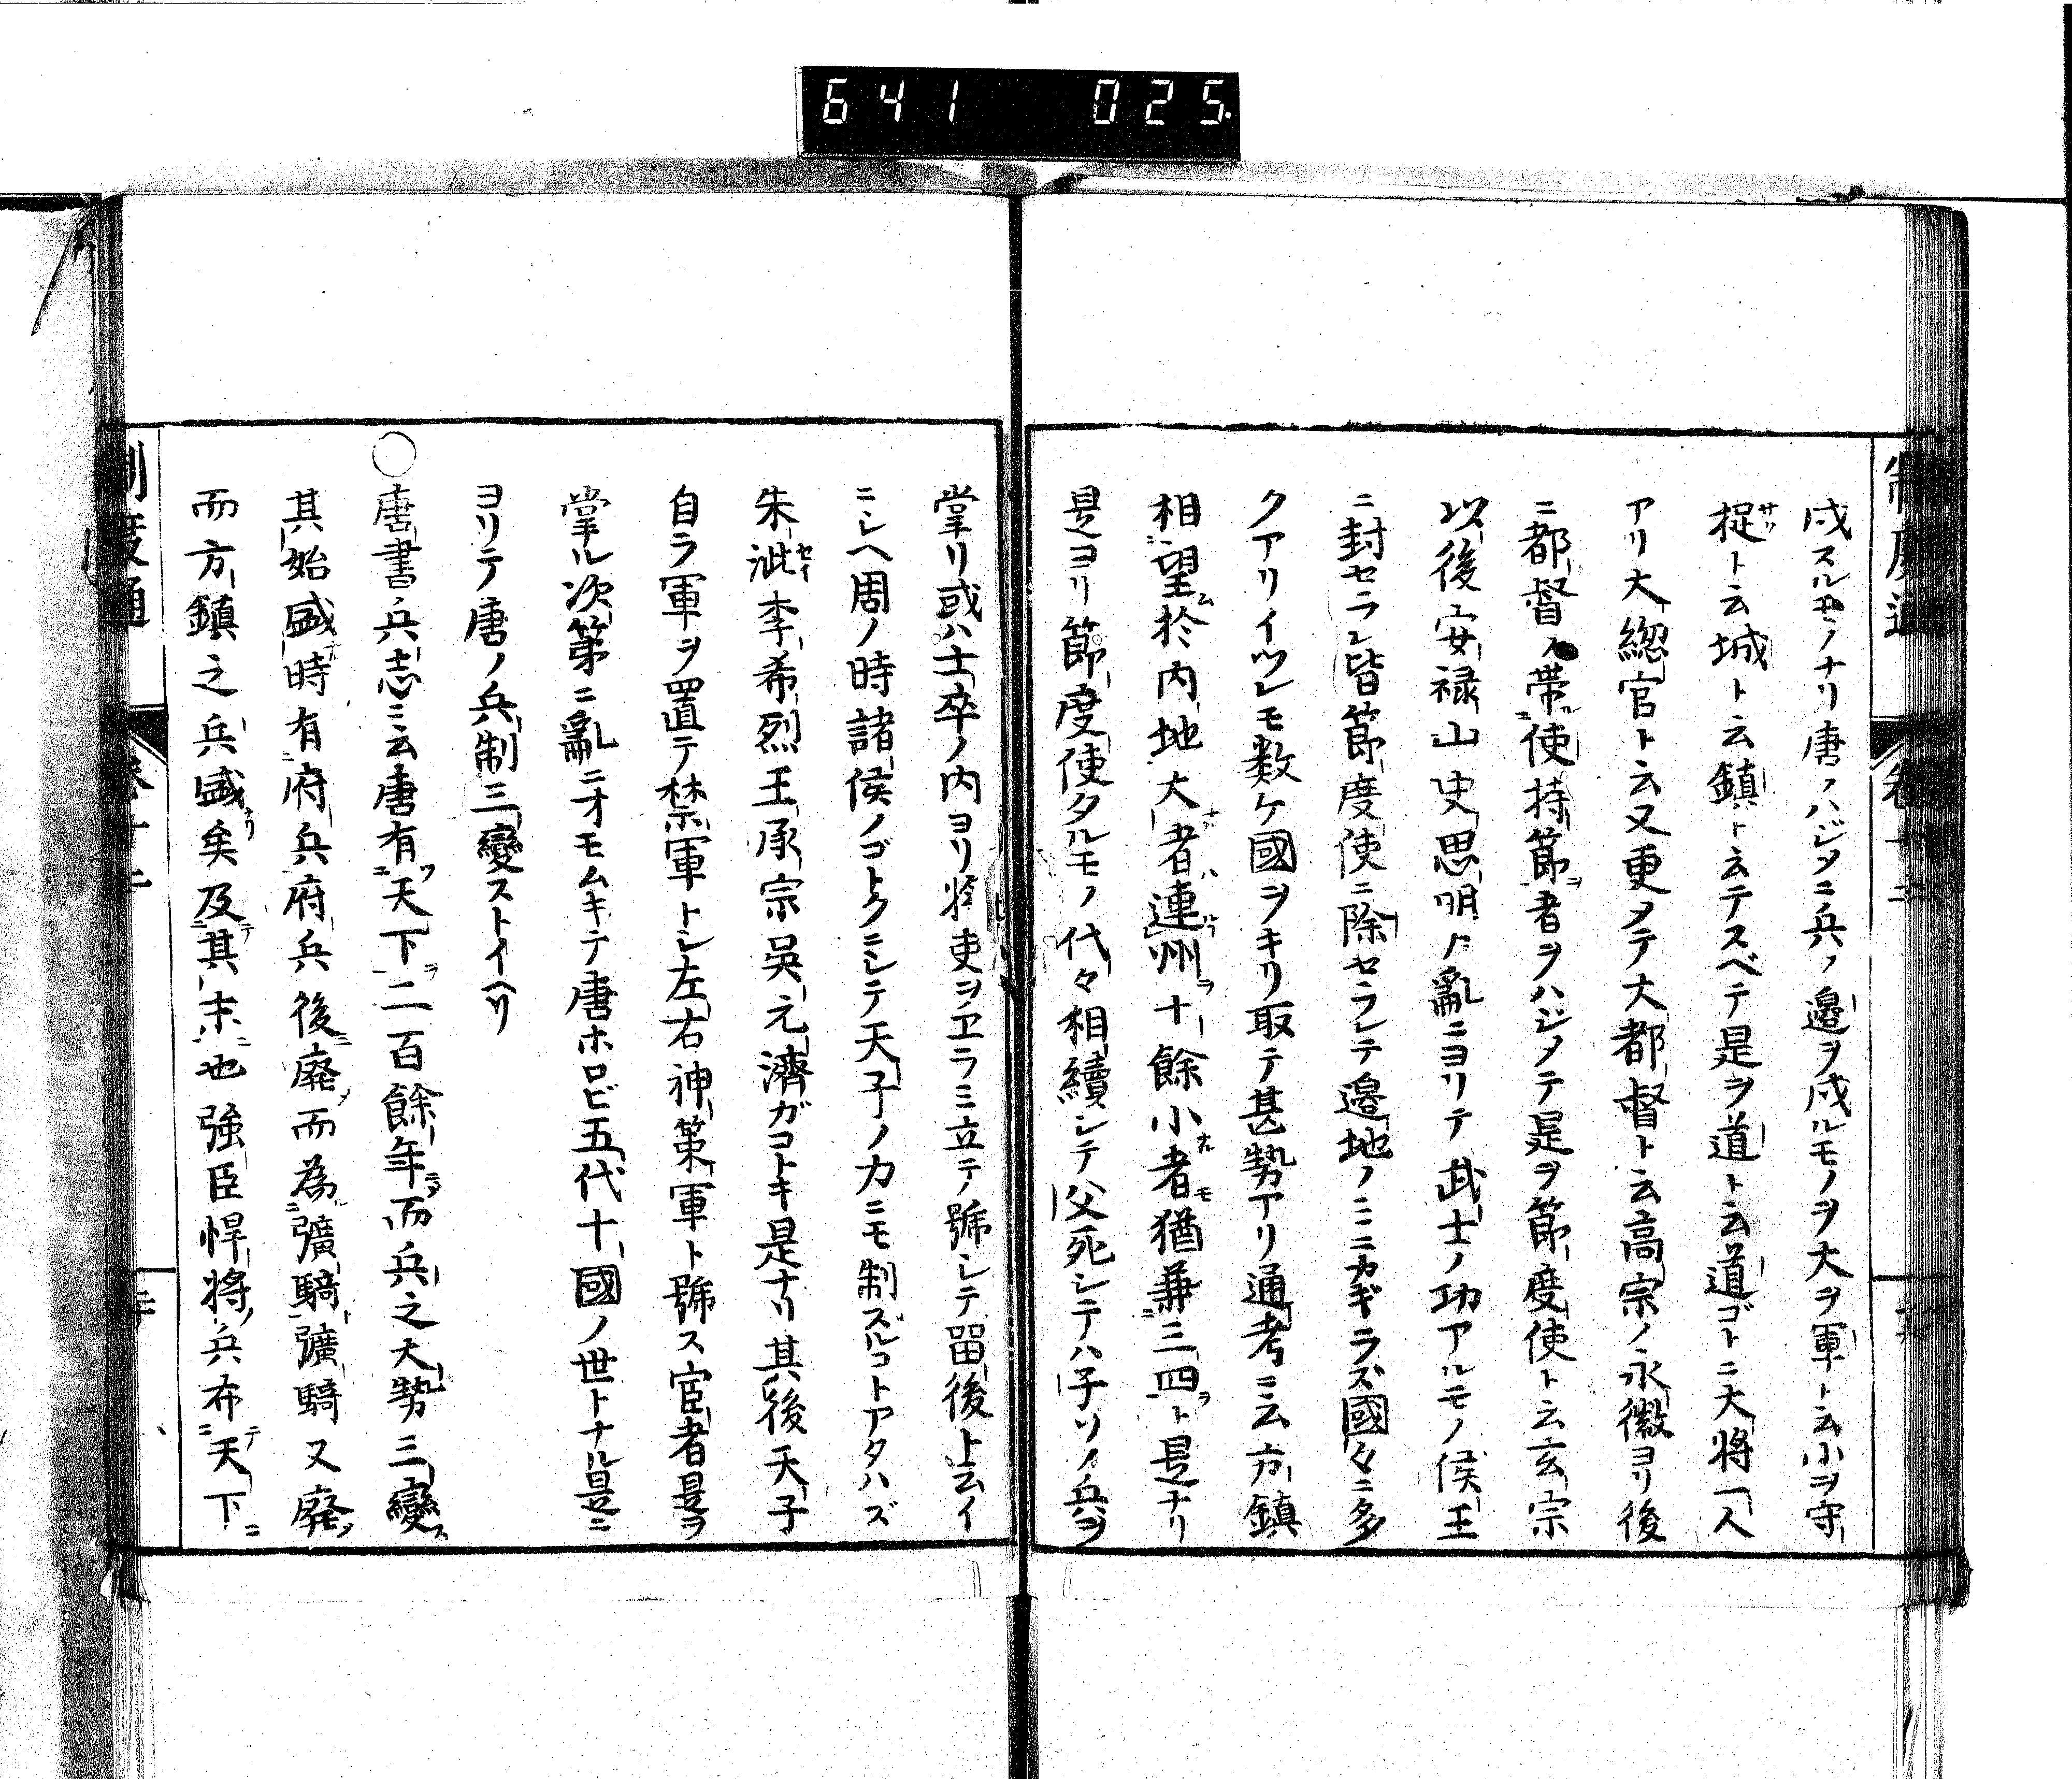 641 025
戍スルモノナリ唐ノハジメニ兵ノ邉ヲ戍ルモノヲ大ヲ軍ト云小ヲ守
捉ト云城ト云鎮ト云テスベテ是ヲ道ト云道ゴトニ大将一人
アリ大総官ト云又更メテ大都督ト云高宗ノ永徽ヨリ後
ニ都督ノ帯使持節者ヲハジメテ是ヲ節度使ト云玄宗
以後安禄山史思明ガ亂ニヨリテ武士ノ功アルモノ侯王
ニ封セラレ皆節度使ニ除セラレテ邉地ノミニカギラズ國々ニ多
クアリイヅレモ数ケ國ヲキリ取テ甚勢アリ通考ニ云方鎮
相望於内地大者連州十餘小者猶兼三四ト是ナリ
是ヨリ節度使タルモノ代々相續シテ父死シテハ子ソノ兵ヲ
掌リ或ハ士卒ノ内ヨリ将吏ヲヱラミ立テ號シテ留後ト云イ
ニシヘ周ノ時諸侯ノゴトクニシテ天子ノ力ニモ制スルコトアタハズ
朱泚李希烈王承宗吳元濟ガコトキ是ナリ其後天子
自ラ軍ヲ置テ禁軍トシ左右神策軍ト號ス宦者是ヲ
掌ル次第ニ亂ニオモムキテ唐ホロビ五代十國ノ世トナル是ニ
ヨリテ唐ノ兵制三變ストイヘリ
○唐書兵志ニ云唐有天下二百餘年而兵之大勢三變
其始盛時有府兵府兵後廢而為彍騎彍騎又廢
而方鎮之兵盛矣及其末也強臣悍将兵布天下
制度通